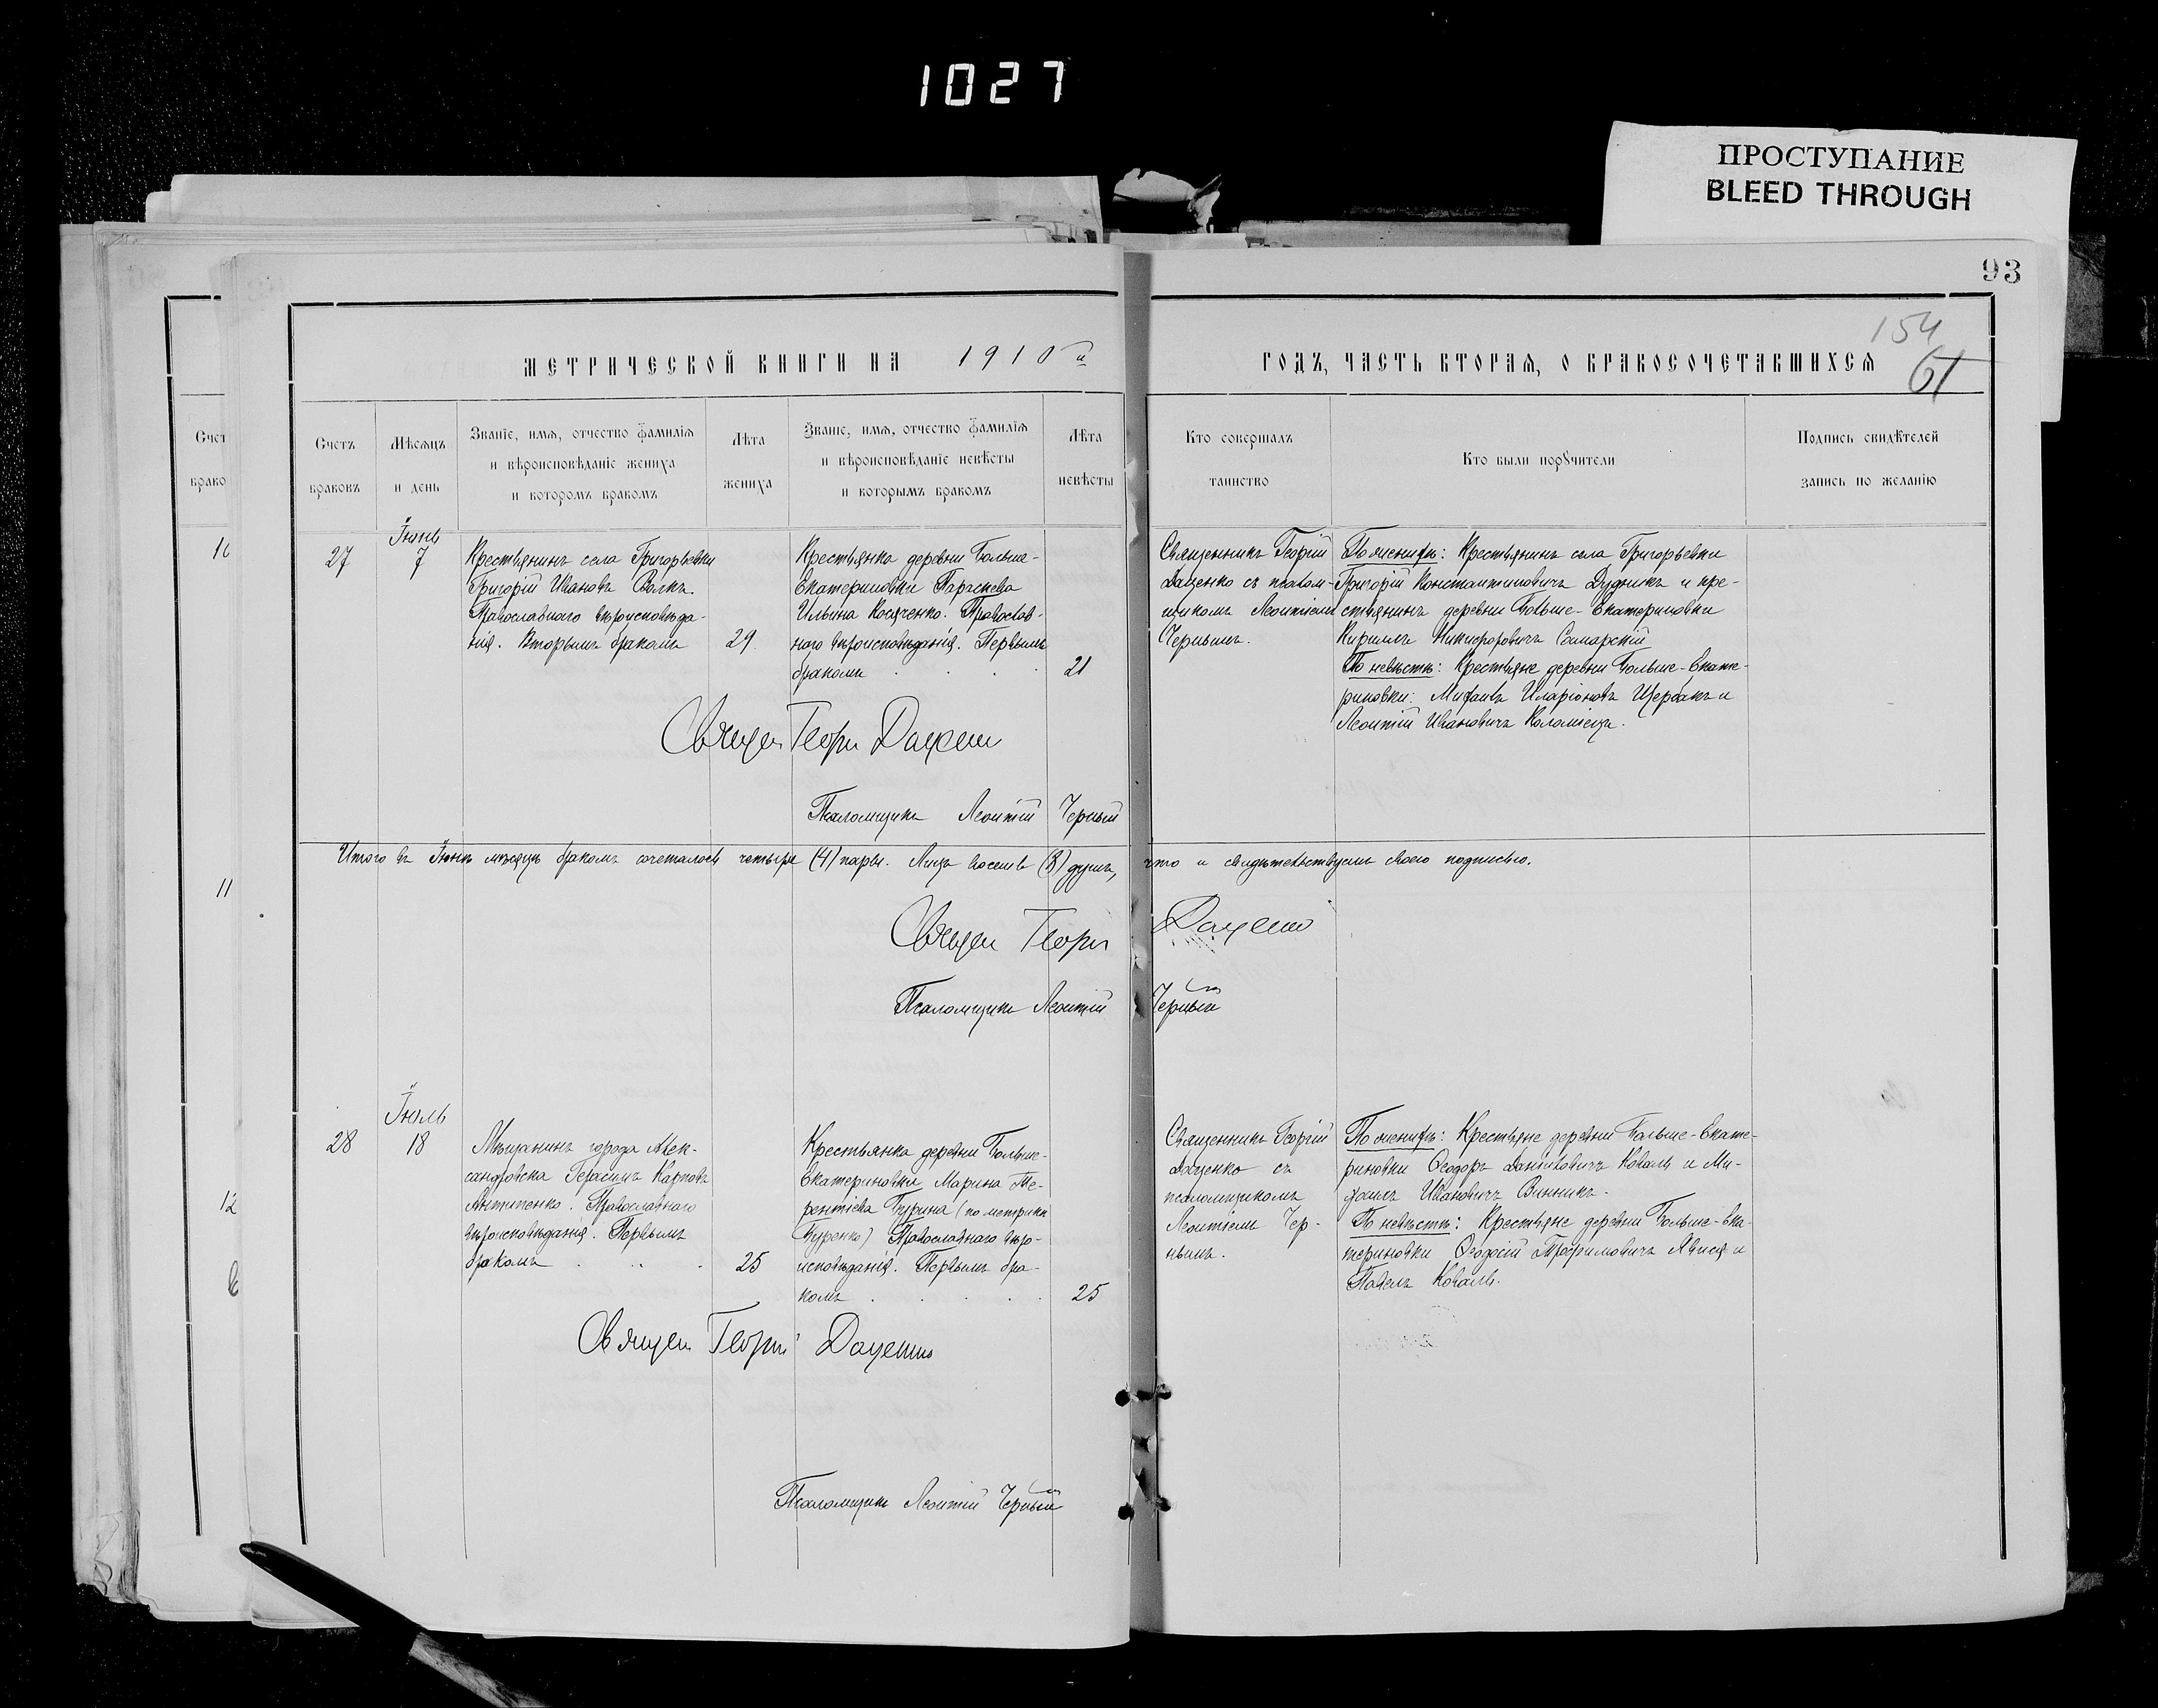 1027
ПРОСТУПАНИЕ
BLEED THROUGH
93
154
61
МЕТРИЧЕСКОЙ КНИГИ НА 1910й ГОДЪ, ЧАСТЬ ВТОРАЯ, О БРАКОСОЧЕТАВШИХСЯ
Счет
брако
10
11
12
Счетъ
браковъ
Мѣсяцъ
и день
Званіе, имя, отчество фамилія
и вѣроисповѣданіе жениха
и которомъ бракомъ
Лѣта
жениха
Званіе, имя, отчество фамилія
и вѣроисповѣданіе невѣсты
и которымъ бракомъ
Лѣта
невѣсты
Кто совершалъ
таинство
Кто были порꙋчители
Подпись свидѣтелей
запись по желанію
27
Іюнь
7
Крестьянинъ села Григорьевки
Григорій Ивановъ Волкъ.
Православнаго вѣроисповѣда-
нія. Вторымъ бракомъ
29
Крестьянка деревни Больше-
Екатериновки Параскева
Ильина Косяченко. Православ-
наго вѣроисповѣданія. Первымъ
бракомъ
21
Священникъ Георгій
Даценко съ псалом-
щикомъ Леонтіемъ
Чернымъ.
По женихѣ: Крестьянинъ села Григорьевки
Григорій Константиновичъ Дудникъ и кре-
стьянинъ деревни Больше-Екатериновки
Кириллъ Никифоровичъ Самарскій
По невѣстѣ: Крестьяне деревни Больше-Екате-
риновки: Михаилъ Иларіоновъ Щербакъ и
Леонтій Ивановичъ Коломіецъ.
Священ Георгі Даценко
Псаломщикъ Леонтій Черный
Итого въ Іюнѣ мѣсяцѣ бракомъ сочеталось четыре (4) пары. Лицъ восемь (8) душъ, что и свидѣтельствуемъ своею подписью.
Священ Георгі Даценко
Псаломщикъ Леонтій Черный
28
Іюль
18
Мѣщанинъ города Алек-
сандровска Герасимъ Карповъ
Антипенко. Православнаго
вѣроисповѣданія. Первымъ
бракомъ
25
Крестьянка деревни Больше-
Екатериновки Марина Те-
рентіева Бурина (по метрикѣ
Буренко) Православнаго вѣро-
исповѣданія. Первымъ бра-
комъ
25
Священникъ Георгій
Даценко съ
псаломщикомъ
Леонтіемъ Чер-
нымъ.
По женихѣ: Крестьяне деревни Больше-Екате-
риновки Ѳеодоръ Даниловичъ Коваль и Ми-
хаилъ Ивановичъ Винникъ.
По невѣстѣ: Крестьяне деревни Больше-Ека-
териновки Ѳеодосій Трофимовичъ и
Павелъ Коваль.
Священ Георгій Даценко
Псаломщикъ Леонтій Черный